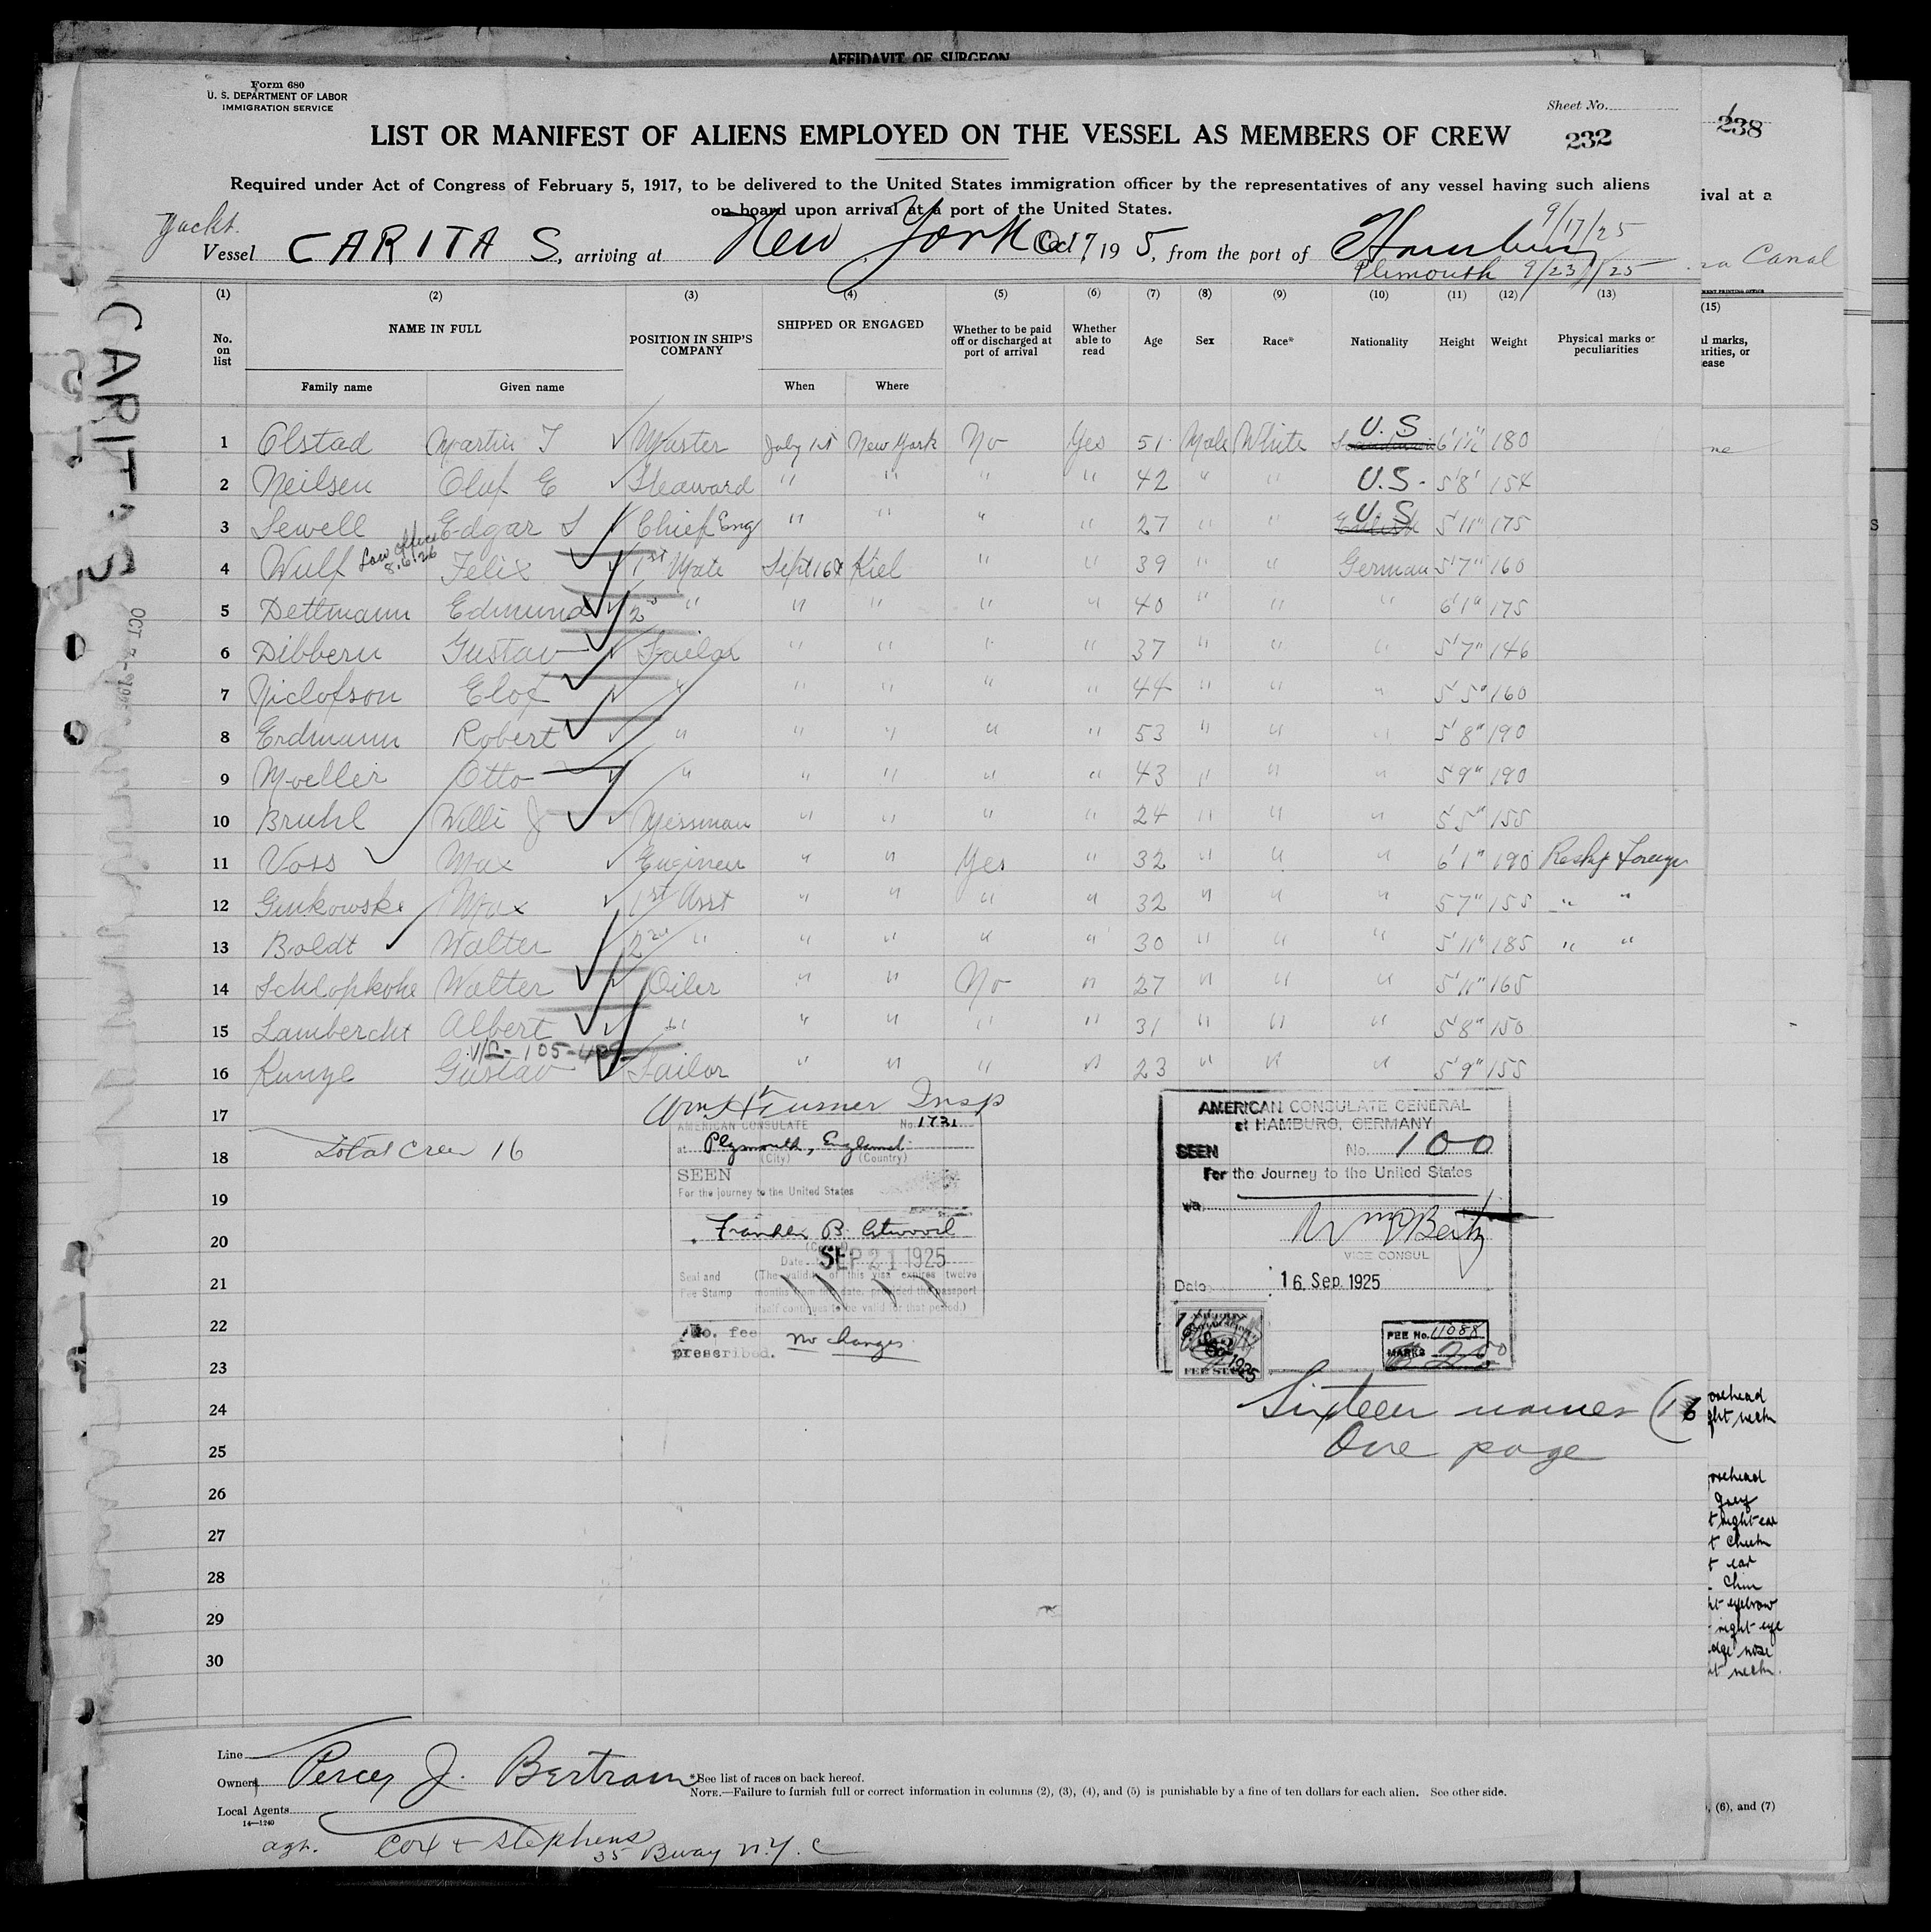 AFFIDAVIT OF SURGEON
Form 680
U. S. DEPARTMENT OF LABOR
IMMIGRATION SERVICE
Sheet No.
LIST OR MANIFEST OF ALIENS EMPLOYED ON THE VESSEL AS MEMBERS OF CREW
232
238
Required under Act of Congress of February 5, 1917, to be delivered to the United States immigration officer by the representatives of any vessel having such aliens
on board upon arrival at a port of the United States.
ival at a
Yacht.
9/17/25
Vessel CARITA S, arriving at New York Oct 7 19 5, from the port of Hamburg
Plimouth 9/23/25
Canal
CARITA S
(1) (2) (3) (4) (5) (6) (7) (8) (9) (10) (11) (12) (13)
(15)
No. on list
NAME IN FULL
Family name Given name
POSITION IN SHIP'S COMPANY
SHIPPED OR ENGAGED
When Where
Whether to be paid off or discharged at port of arrival
Whether able to read
Age Sex Race* Nationality Height Weight
Physical marks or peculiarities
1 Olstad Martin T Master July 1st New York No Yes 51 Male White U.S 6'1½" 180
2 Neilsen Oluf E Steaward " " " " 42 " " U.S. 5'8' 154
3 Sewell Edgar S Chief Eng " " " " 27 " " U S English 5'11" 175
8.6.26
4 Wulf Felix 1st Mate Sept 16th Kiel " " 39 " " German 5'7" 160
5 Dettmann Edmund 2d " " " " " 40 " " " 6'1" 175
6 Dibbern Gustav Sailor " " " " 37 " " " 5'7" 146
7 Niclofson Elof " " " " " 44 " " " 5'5" 160
8 Erdmann Robert " " " " " 53 " " " 5'8" 190
9 Moeller Otto " " " " " 43 " " " 5'9" 190
10 Bruhl Willi J Messman " " " " 24 " " " 5'5" 155
11 Voss Max Engineer " " Yes " 32 " " " 6'1" 190 Reship Foreign
12 Gukowske Max 1st Asst " " " " 32 " " " 5'7" 155 " "
13 Boldt Walter 2nd " " " " " 30 " " " 5'11" 185 " "
14 Schlopkohe Walter Oiler " " No " 27 " " " 5'11" 165
15 Lambercht Albert " " " " " 31 " " " 5'8" 150
16 Kunze Gustav Sailor " " " " 23 " " " 5'9" 155
17
Wm H Turner Insp
18 Total Crew 16
19
20
21
22
23
24
25
26
27
28
29
30
AMERICAN CONSULATE No. 1731
at Plymouth, England
(City) (Country)
SEEN
For the journey to the United States
Franklin B. Atwood
Date SEP 21 1925
Seal and Fee Stamp
(The validity of this visa expires twelve
months from this date, provided the passport
itself continues to be valid for that period.)
No. fee
prescribed.
no changes
AMERICAN CONSULATE GENERAL
at HAMBURG, GERMANY
SEEN No. 100
For the Journey to the United States
via
VICE CONSUL
Date 16. Sep. 1925
FEE No. 11088
MARKS
Sixteen names (16
One page
orehead
orehead
right ear
ear
chin
right eye
Line
Owners Percy J. Bertram
Local Agents
14—1240
*See list of races on back hereof.
NOTE.—Failure to furnish full or correct information in columns (2), (3), (4), and (5) is punishable by a fine of ten dollars for each alien. See other side.
, (6), and (7)
agt. Cox & Stephens
35 Bway N.Y.C